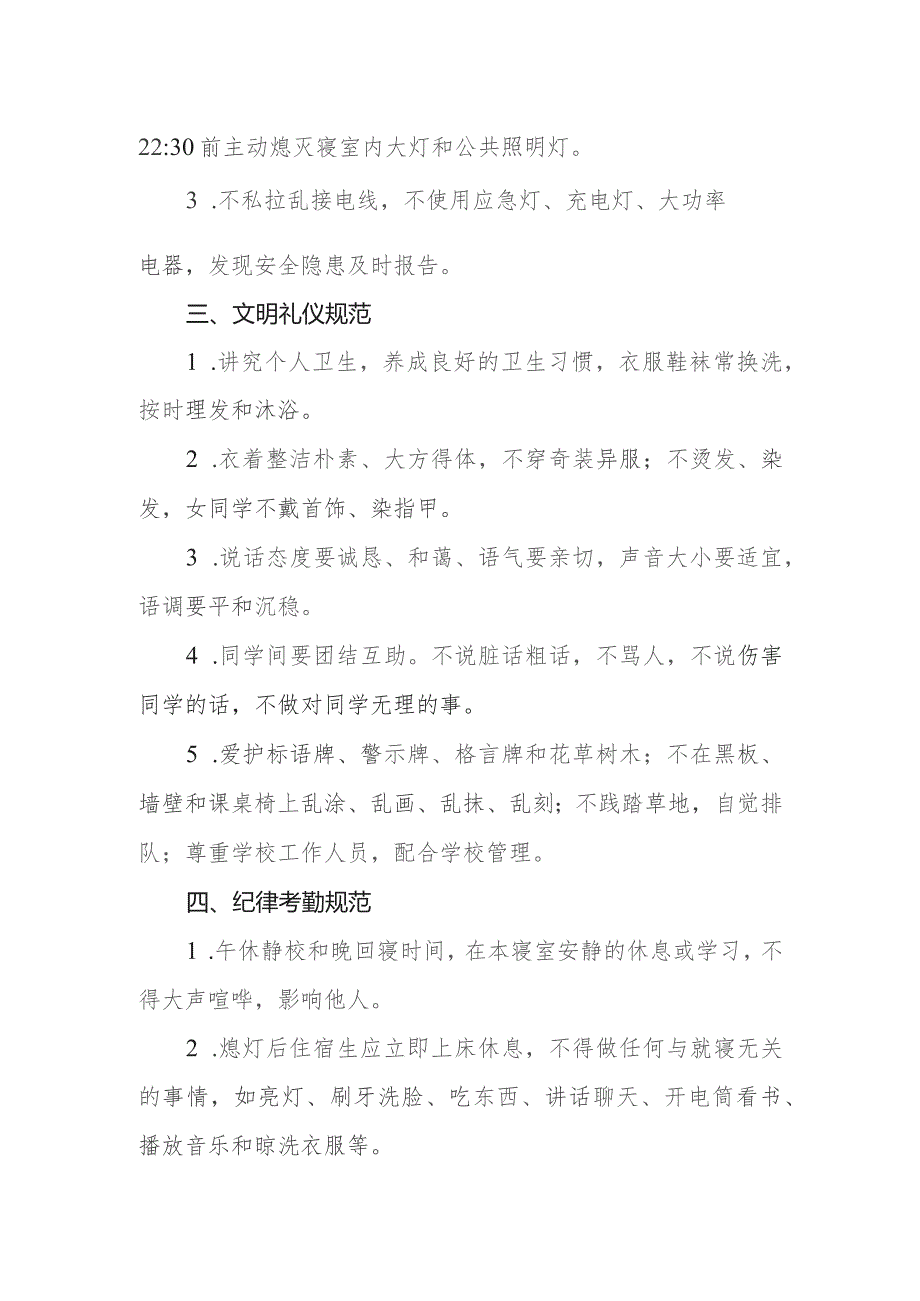 22:30前主动熄灭寝室内大灯和公共照明灯。
3 .不私拉乱接电线，不使用应急灯、充电灯、大功率
电器，发现安全隐患及时报告。
三、文明礼仪规范
1 .讲究个人卫生，养成良好的卫生习惯，衣服鞋袜常换洗，
按时理发和沐浴。
2 .衣着整洁朴素、大方得体，不穿奇装异服；不烫发、染
发，女同学不戴首饰、染指甲。
3 .说话态度要诚恳、和蔼、语气要亲切，声音大小要适宜，
语调要平和沉稳。
4 .同学间要团结互助。不说脏话粗话，不骂人，不说伤害
同学的话，不做对同学无理的事。
5 .爱护标语牌、警示牌、格言牌和花草树木；不在黑板、
墙壁和课桌椅上乱涂、乱画、乱抹、乱刻；不践踏草地，自觉排
队；尊重学校工作人员，配合学校管理。
四、纪律考勤规范
1 .午休静校和晚回寝时间，在本寝室安静的休息或学习，不
得大声喧哗，影响他人。
2 .熄灯后住宿生应立即上床休息，不得做任何与就寝无关
的事情，如亮灯、刷牙洗脸、吃东西、讲话聊天、开电筒看书、
播放音乐和晾洗衣服等。